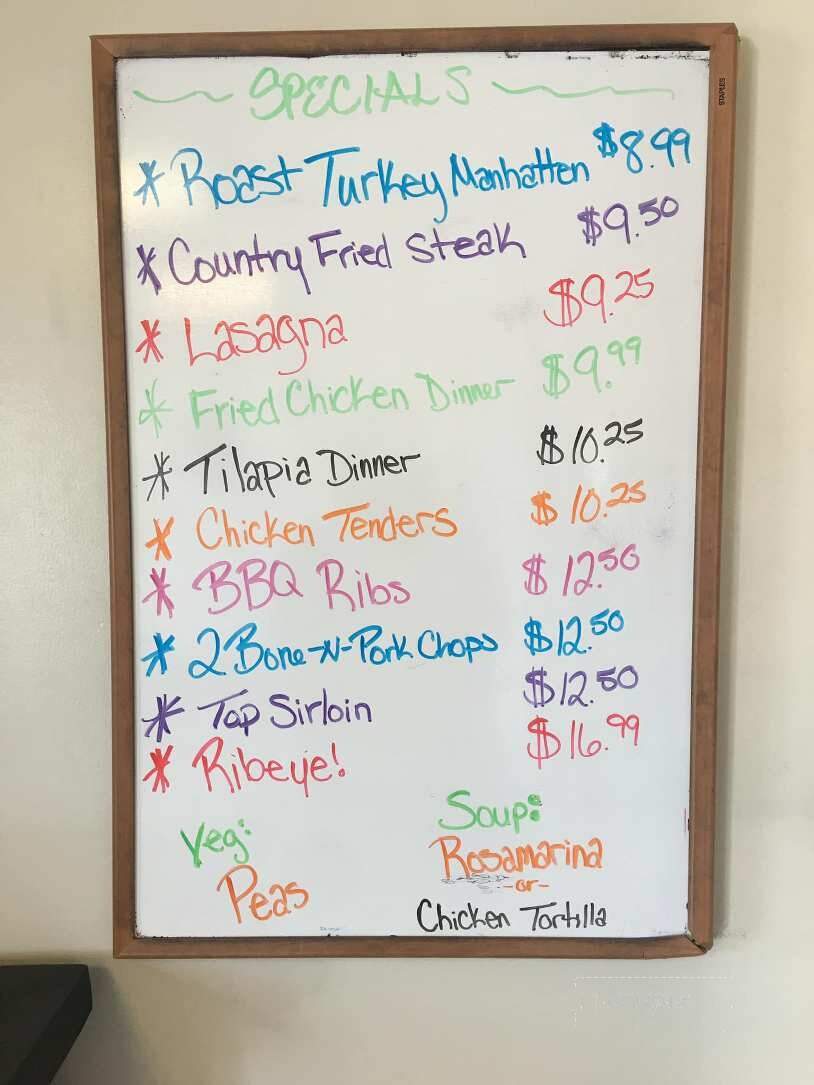 SPECIALS
* Roast Turkey Manhatten $8.99
* Country Fried Steak $9.50
* Lasagna $9.25
* Fried Chicken Dinner $9.99
* Tilapia Dinner $10.25
* Chicken Tenders $10.25
* BBQ Ribs $12.50
* 2 Bone-N-Pork Chops $12.50
* Top Sirloin $12.50
* Ribeye! $16.99
Veg:
Peas
Soup:
Rosamarina
-or-
Chicken Tortilla